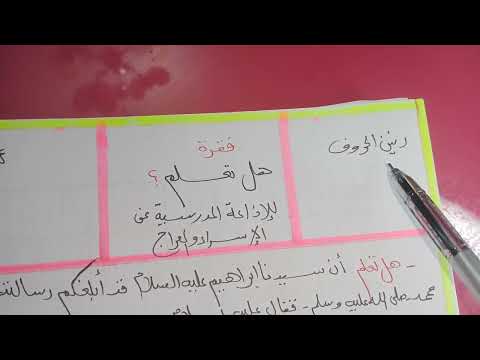 رنين الحروف
فقرة
هل تعلم ؟
للإذاعة المدرسية عن
الإسراء والمعراج
- هل تعلم أن سيدنا إبراهيم عليه السلام قد أبلغكم رسالته
محمد - صلى الله عليه وسلم - فقال عليه